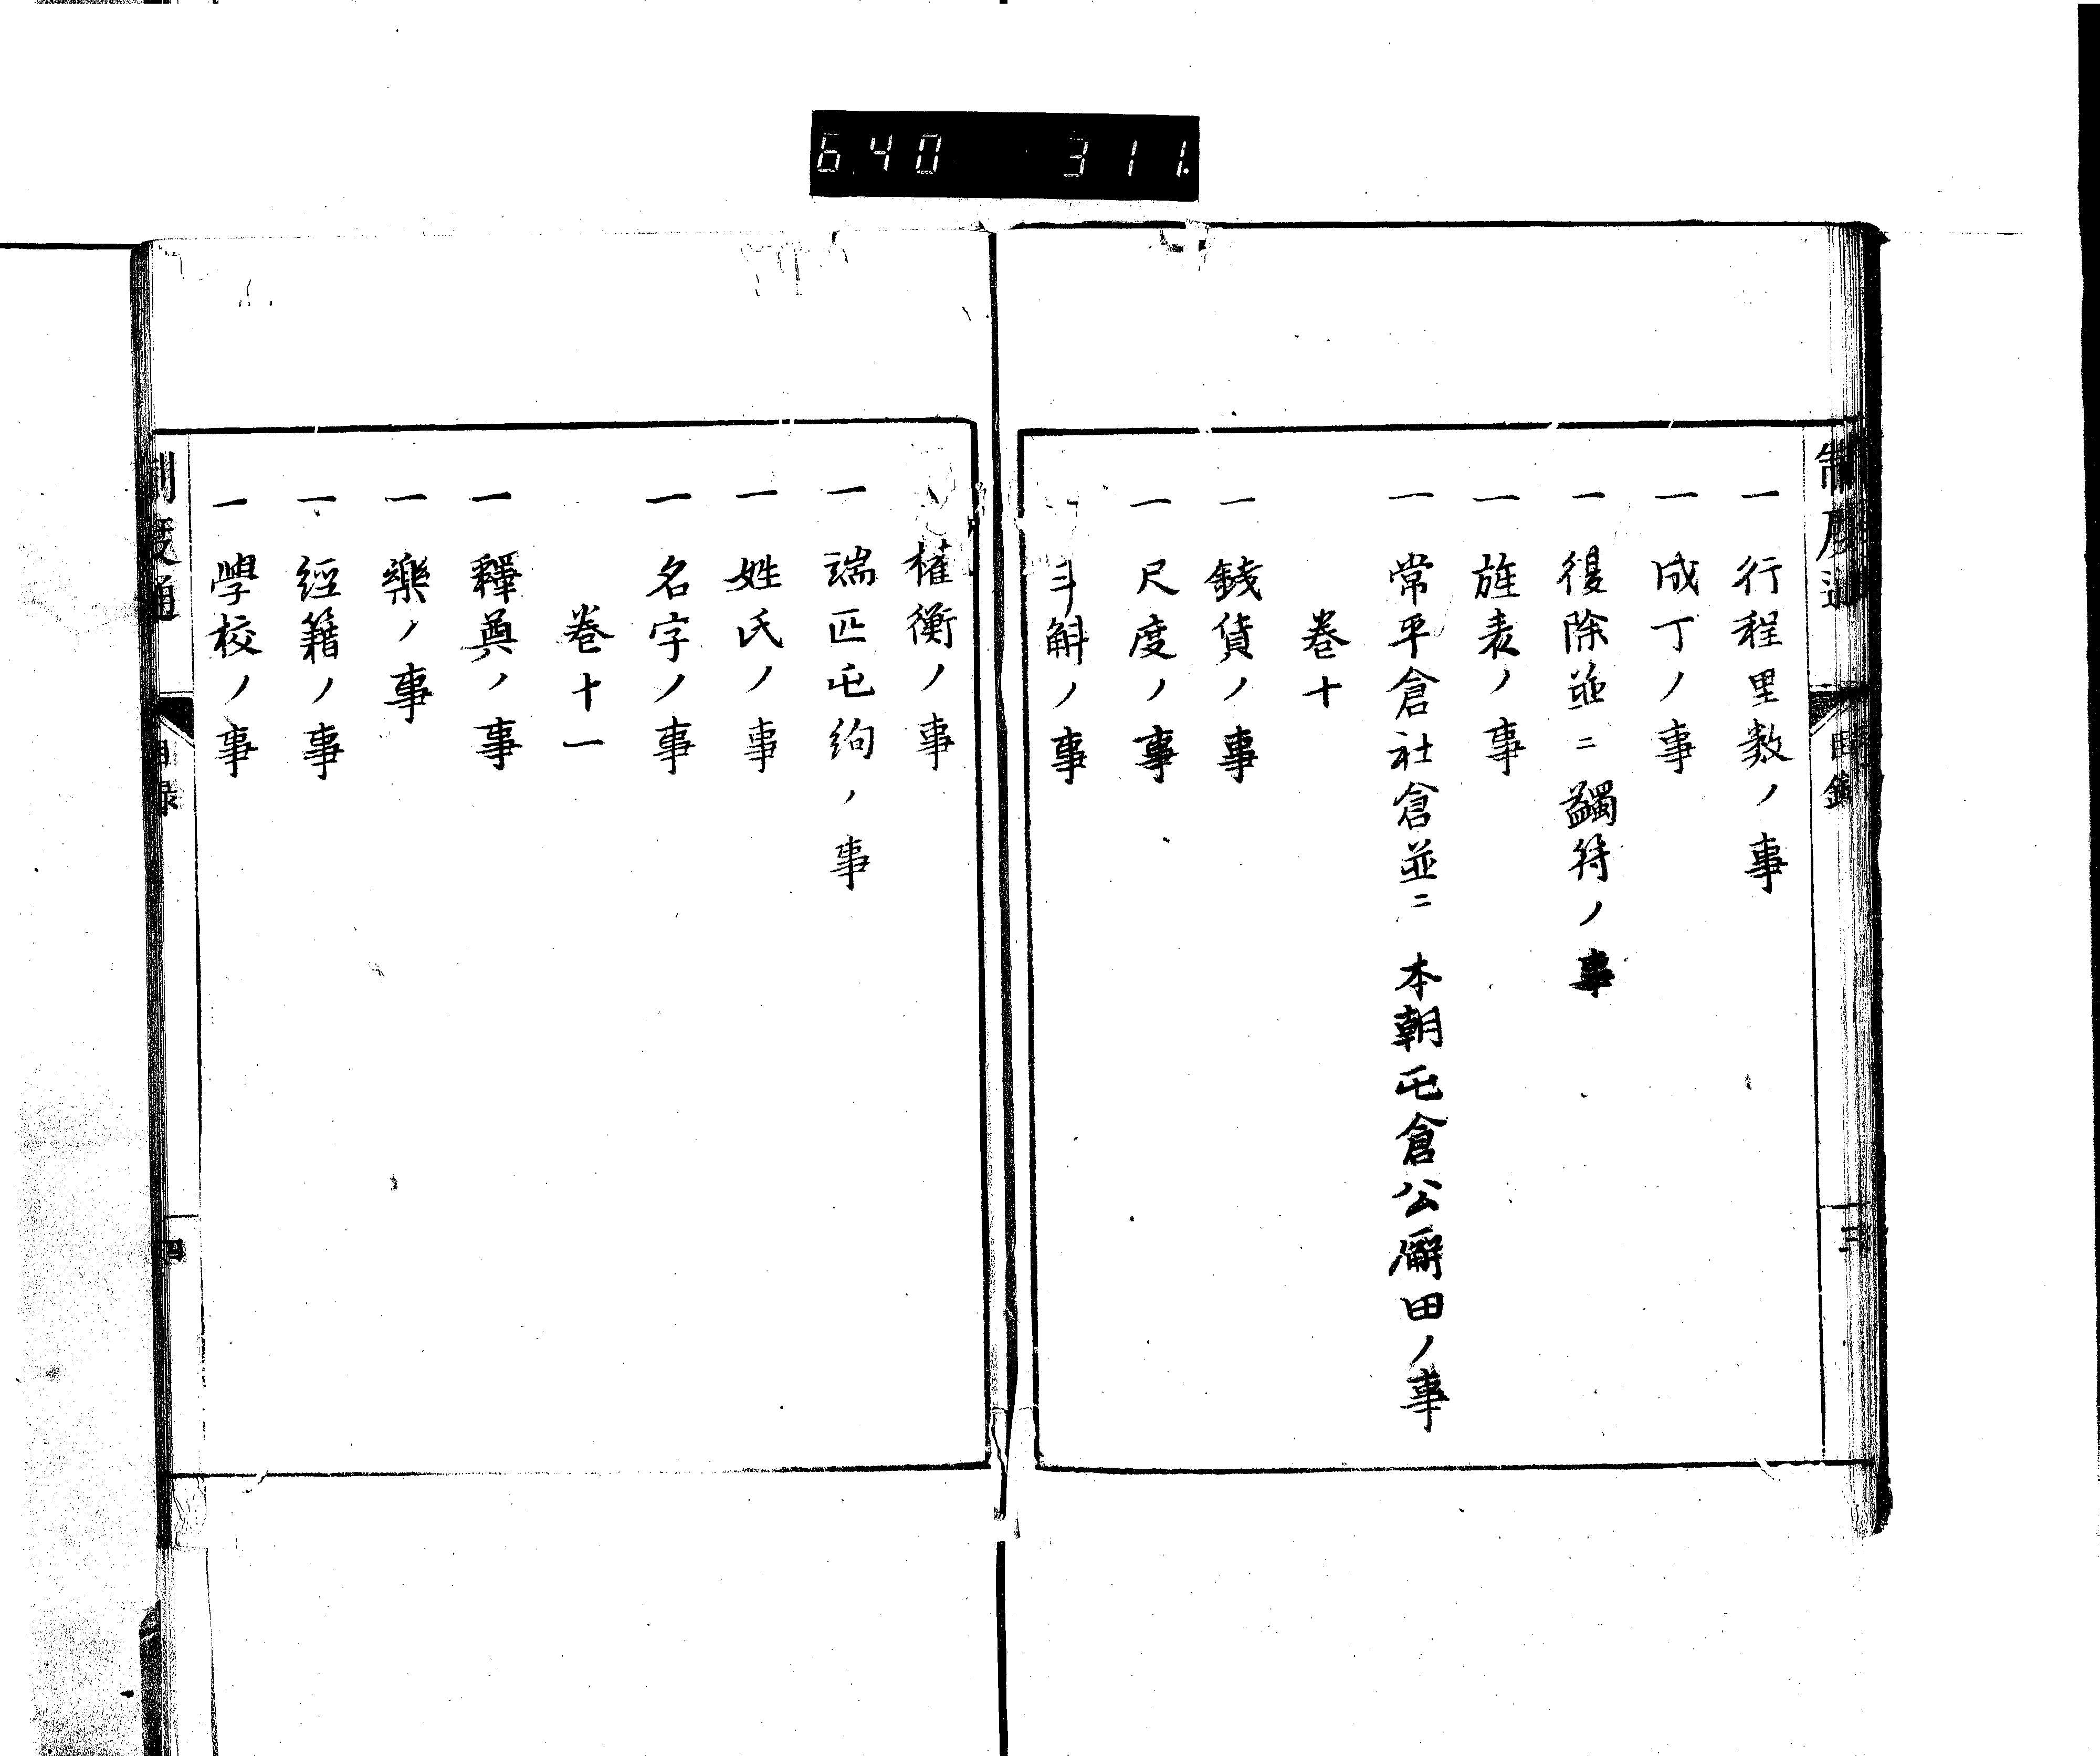 640 311.
制度通
目録
一 行程里数ノ事
一 成丁ノ事
一 復除並ニ蠲符ノ事
一 旌表ノ事
一 常平倉社倉並ニ 本朝屯倉公廨田ノ事
巻十
一 錢貨ノ事
一 尺度ノ事
斗斛ノ事
權衡ノ事
一 端匹屯絇ノ事
一 姓氏ノ事
一 名字ノ事
巻十一
一 釋奠ノ事
一 樂ノ事
一 經籍ノ事
一 學校ノ事
制度通
目録
四